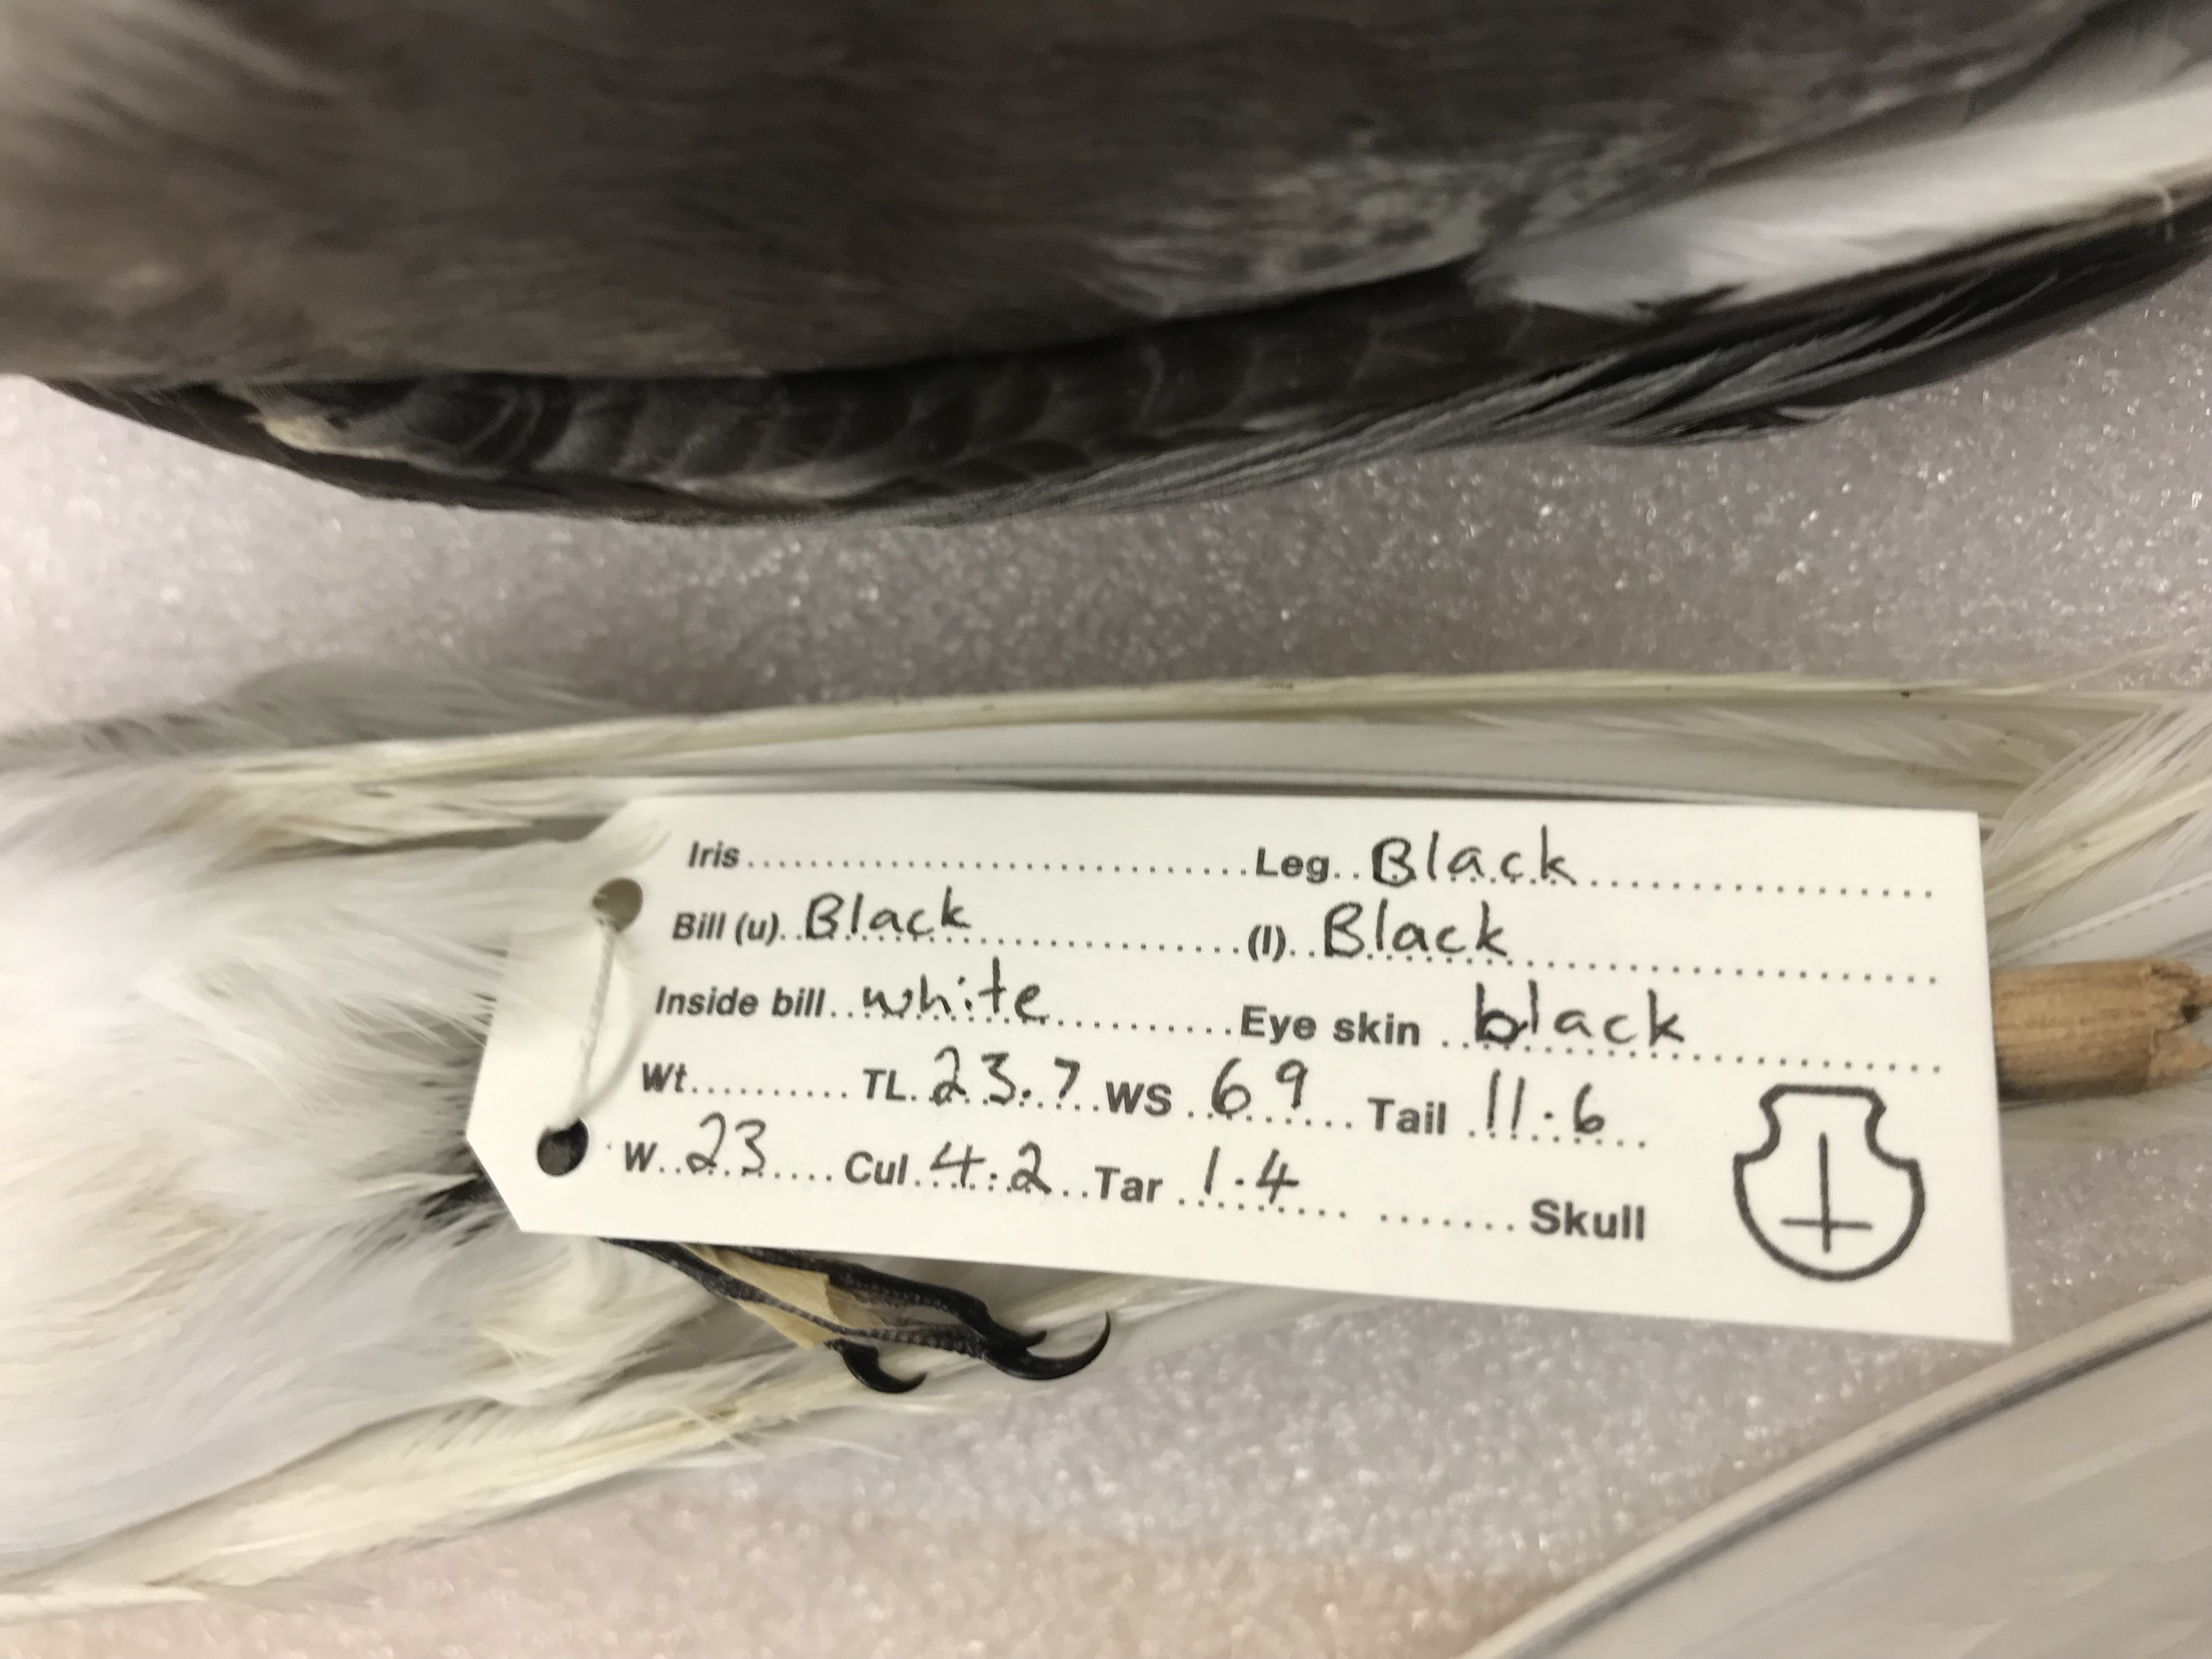 Iris.......................................Leg..Black...........................
Bill (u)..Black...........................(l)..Black...........................
Inside bill..white...............Eye skin..black...........................
Wt...........TL.23.7.WS.69....Tail.11.6...
W.23.....Cul.4.2..Tar.1.4.... ........Skull